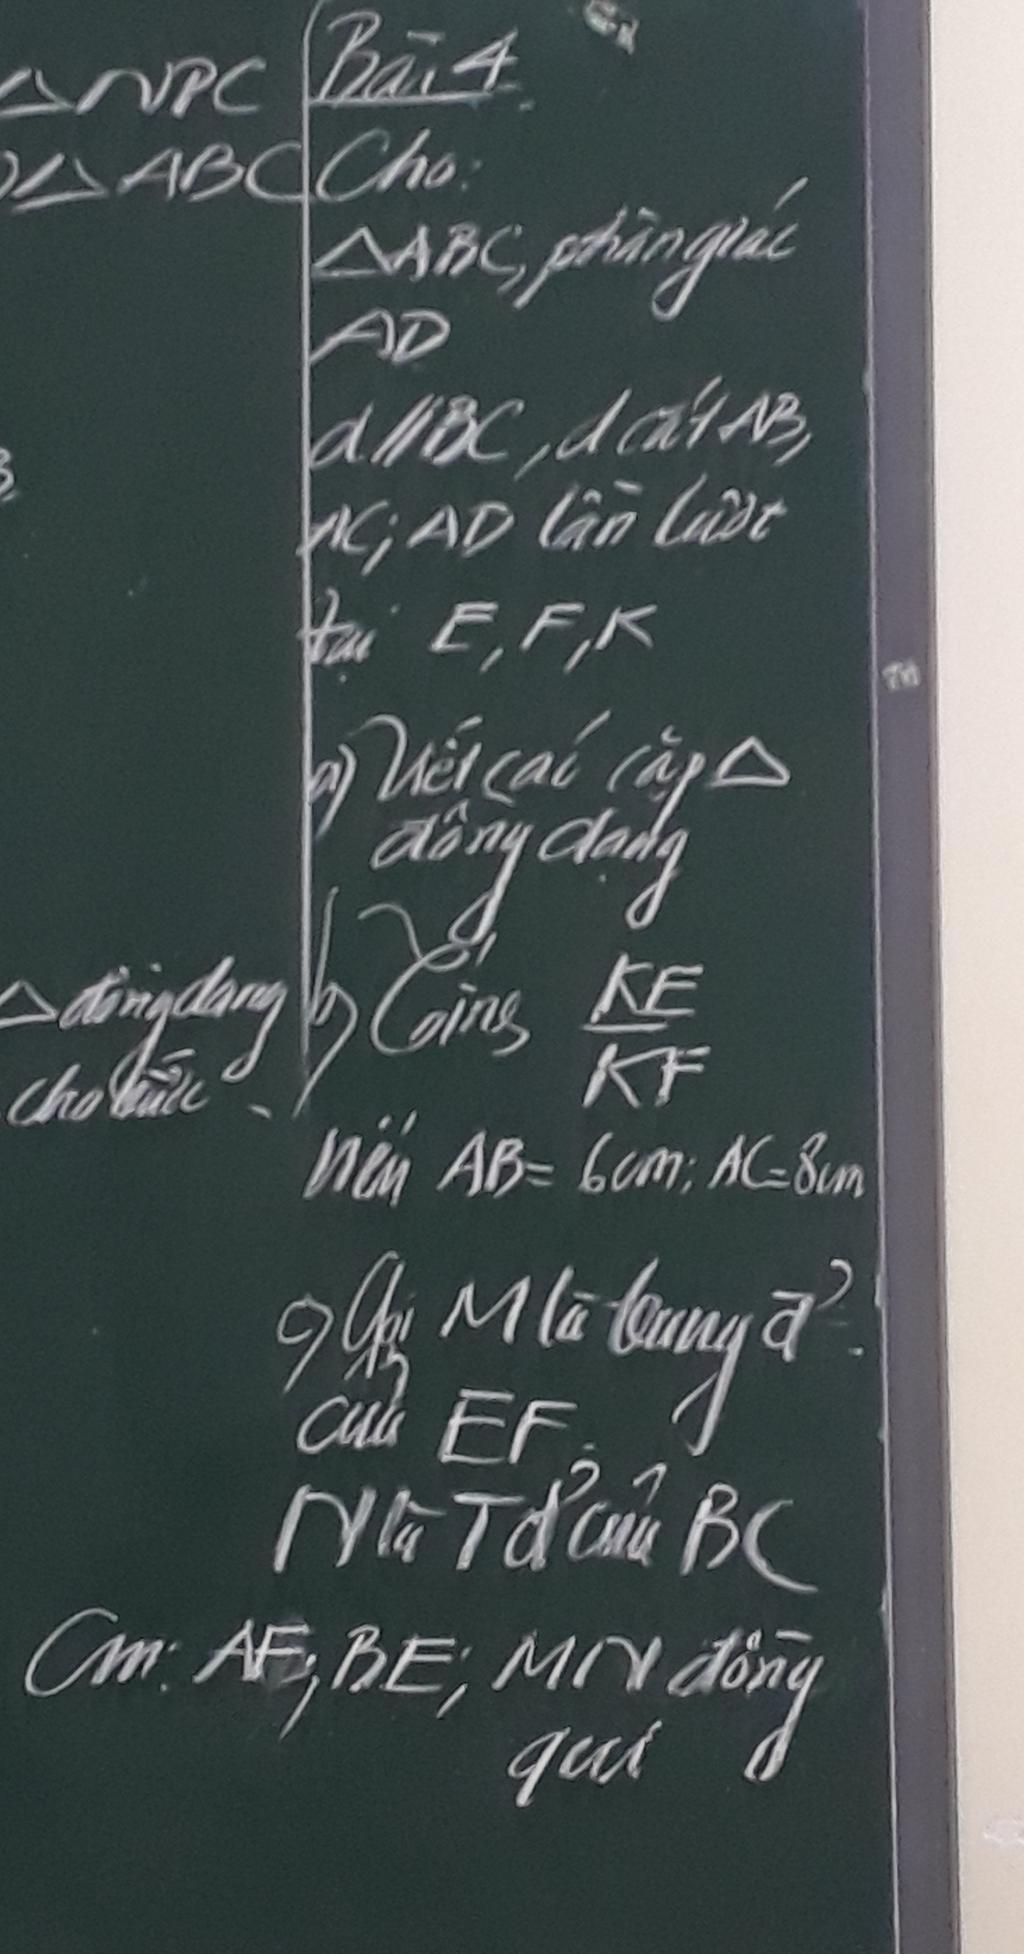 △NPC
△ABC
B
△ đồng dạng
cho trước
Bài 4
Cho:
△ABC, phân giác
AD
d//BC, d cắt AB,
AC; AD lần lượt
tại E, F, K
a) Viết các cặp △
đồng dạng
b) Tính KE/KF
nếu AB = 6cm; AC = 8cm
c) Gọi M là trung đ'
của EF.
N là Tđ' của BC
Cm: AF; BE; MN đồng
qui